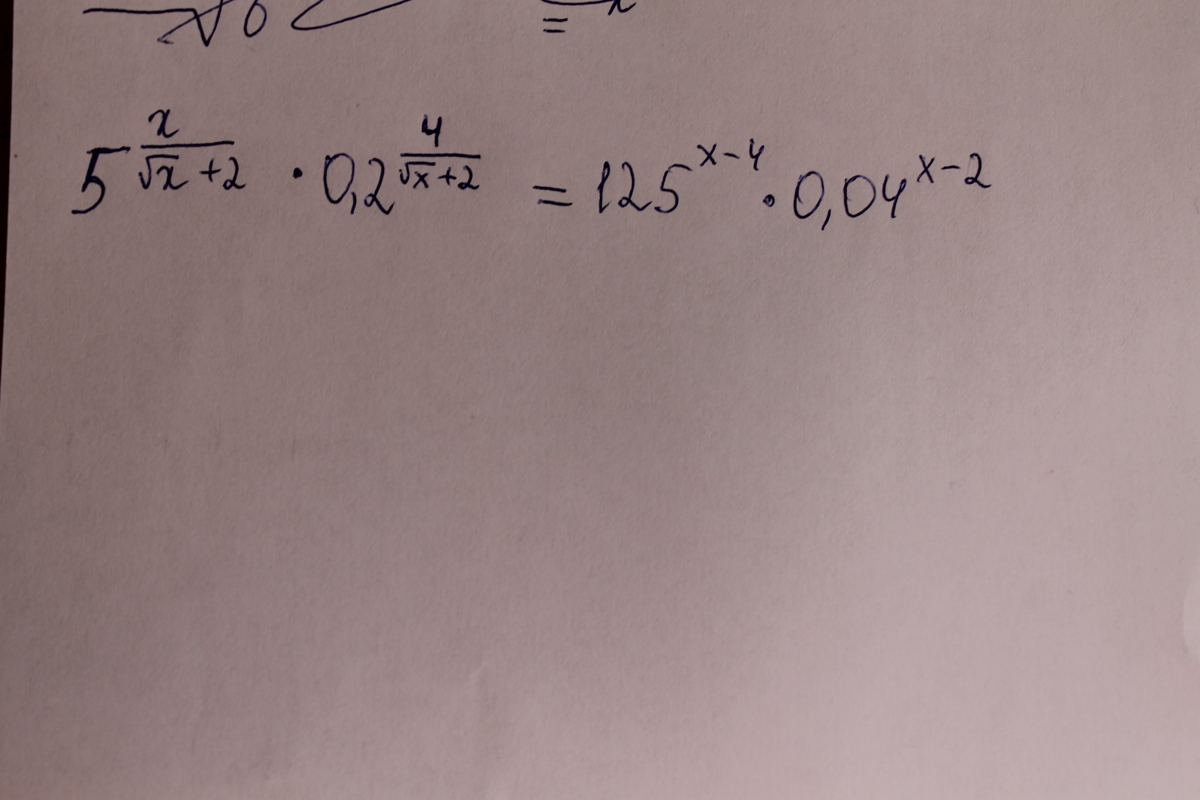 5^{\frac{x}{\sqrt{x}+2}} · 0,2^{\frac{4}{\sqrt{x}+2}} = 125^{x-4} · 0,04^{x-2}